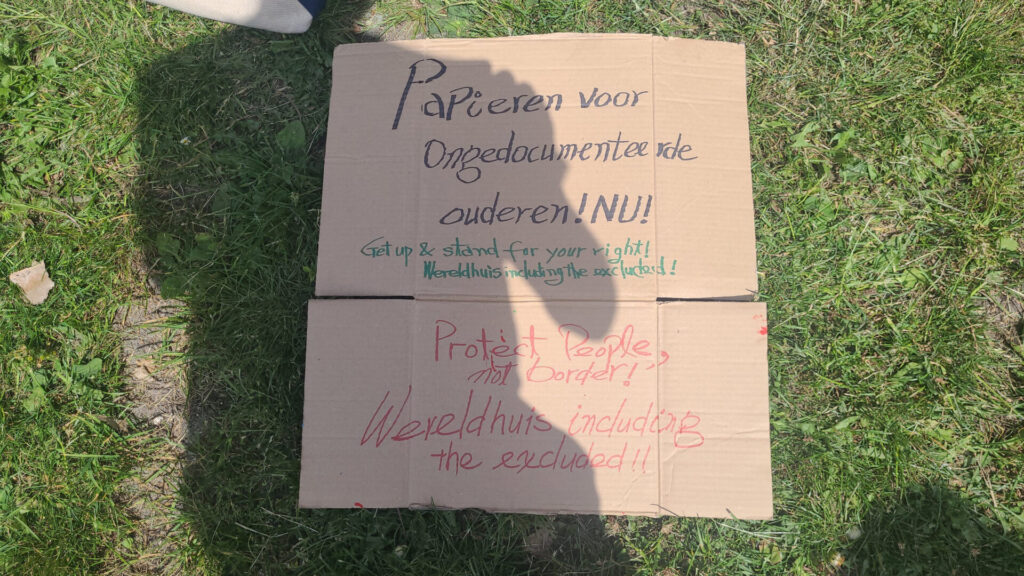 Papieren voor
Ongedocumenteerde
ouderen! NU!
Get up & stand for your right!
Wereldhuis including the excluded!
Protect People,
not border!
Wereldhuis including
the excluded!!